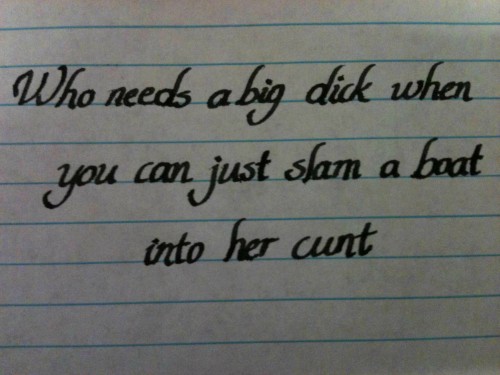 Who needs a big dick when
you can just slam a boat
into her cunt